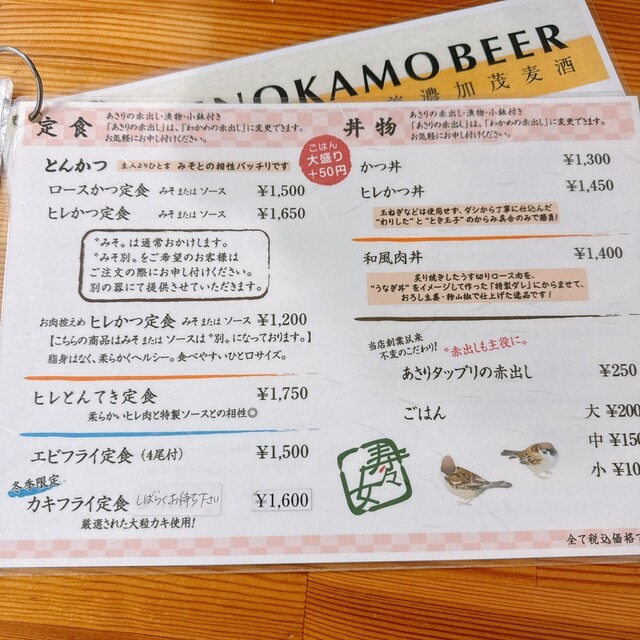 NOKAMOBEER
濃加茂麦酒
定食
あさりの赤出し・漬物・小鉢付き
「あさりの赤出し」は、「わかめの赤出し」に変更できます。
お気軽にお申し付けください。
ごはん
大盛り
+50円
とんかつ 主人よりひと言 みそとの相性バッチリです
ロースかつ定食 みそまたは ソース ¥1,500
ヒレかつ定食 みそまたは ソース ¥1,650
〝みそ〟は通常おかけします。
〝みそ別〟をご希望のお客様は
ご注文の際にお申し付けください。
別の器にて提供させていただきます。
お肉控えめ ヒレかつ定食 みそまたは ソース ¥1,200
【こちらの商品はみそまたは ソースは〝別〟になっております。】
脂身はなく、柔らかくヘルシー。食べやすいひと口サイズ。
ヒレとんてき定食 ¥1,750
柔らかいヒレ肉と特製ソースとの相性◎
エビフライ定食 (4尾付) ¥1,500
冬季限定
カキフライ定食 しばらくお待ち下さい ¥1,600
厳選された大粒カキ使用!
丼物
あさりの赤出し・漬物・小鉢付き
「あさりの赤出し」は、「わかめの赤出し」に変更できます。
お気軽にお申し付けください。
かつ丼 ¥1,300
ヒレかつ丼 ¥1,450
玉ねぎなどは使用せず、ダシから丁寧に仕込んだ
"わりした"と"とき玉子"のからみ具合のみで勝負!
和風肉丼 ¥1,400
炙り焼きしたうす切りロース肉を、
"うなぎ丼"をイメージして作った「特製ダレ」にからませて、
おろし生姜・粉山椒で仕上げた逸品です!
当店創業以来
不変のこだわり!
〝赤出しも主役に〟
あさりタップリの赤出し ¥250
ごはん 大 ¥200
中 ¥150
小 ¥10
寿々女
全て税込価格で